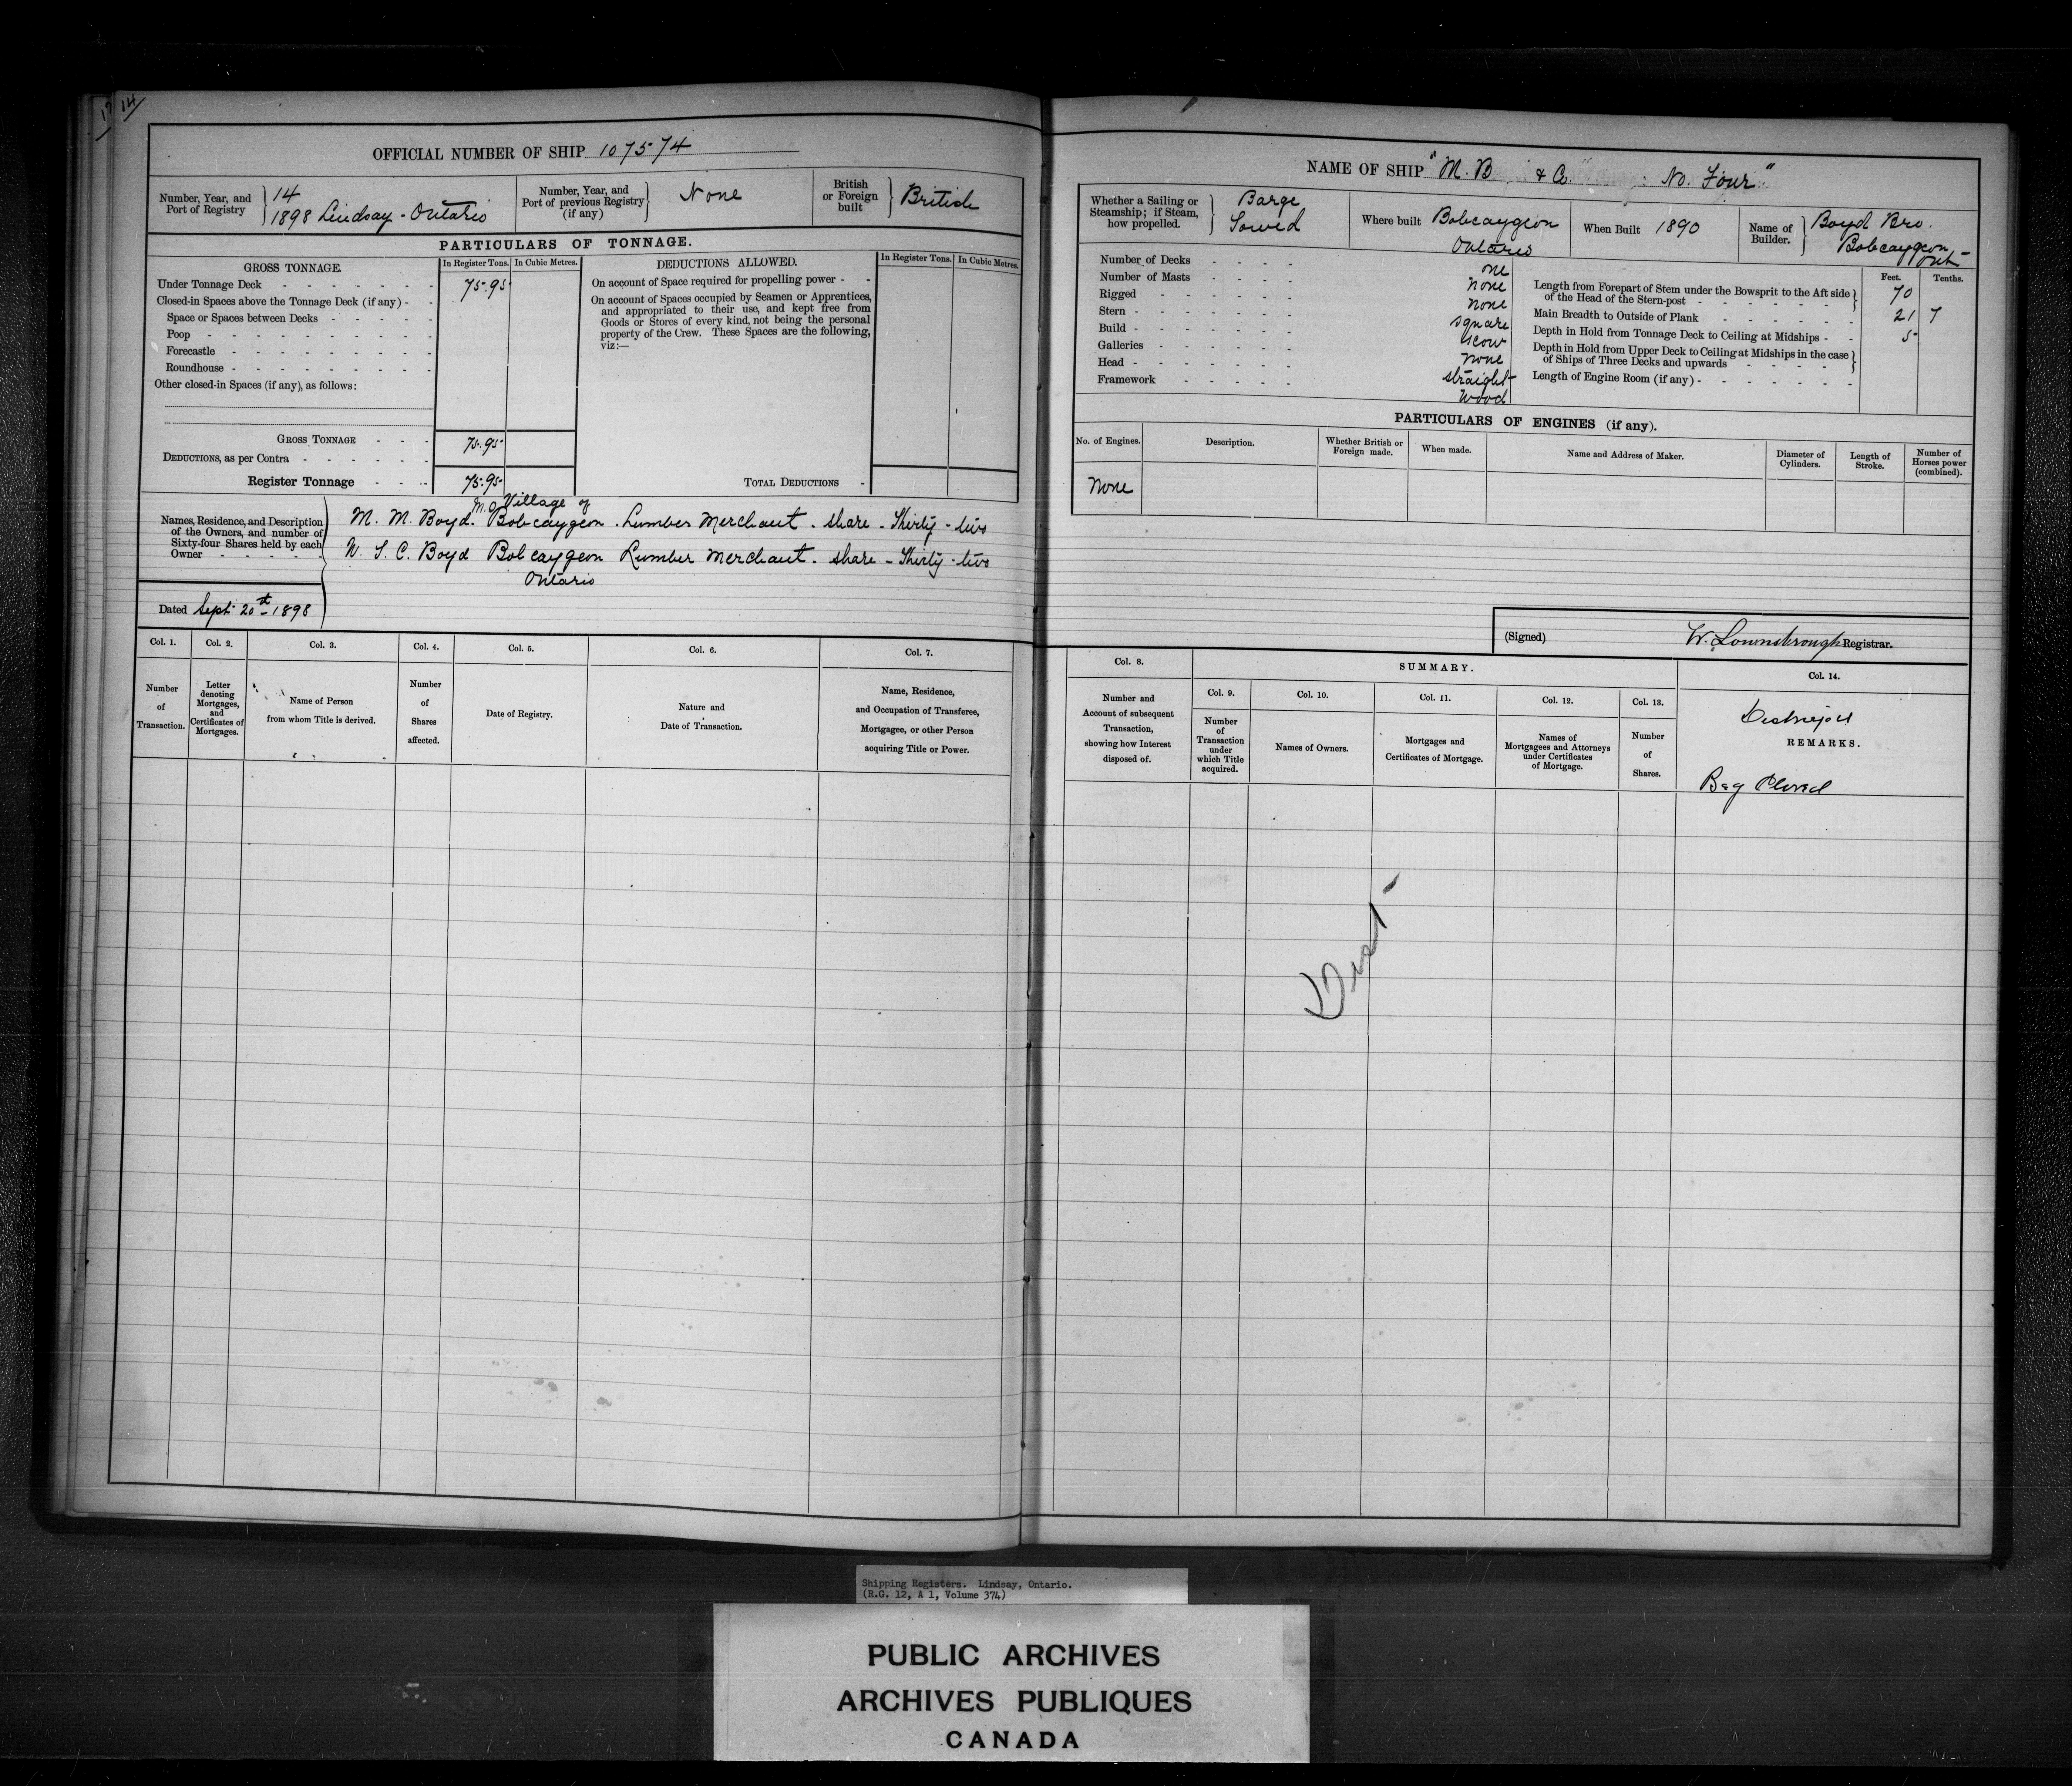 14
OFFICIAL NUMBER OF SHIP 107574
Number, Year, and Port of Registry 14 1898 Lindsay - Ontario
Number, Year, and Port of previous Registry (if any) None
British or Foreign built British
PARTICULARS OF TONNAGE.
GROSS TONNAGE. In Register Tons. In Cubic Metres.
Under Tonnage Deck 75.95
Closed-in Spaces above the Tonnage Deck (if any)
Space or Spaces between Decks
Poop
Forecastle
Roundhouse
Other closed-in Spaces (if any), as follows:
GROSS TONNAGE 75.95
DEDUCTIONS, as per Contra
Register Tonnage 75.95
DEDUCTIONS ALLOWED. In Register Tons. In Cubic Metres.
On account of Space required for propelling power
On account of Spaces occupied by Seamen or Apprentices,
and appropriated to their use, and kept free from
Goods or Stores of every kind, not being the personal
property of the Crew. These Spaces are the following,
viz:—
TOTAL DEDUCTIONS
Names, Residence, and Description
of the Owners, and number of
Sixty-four Shares held by each
Owner
Village of
M. M. Boyd. Bobcaygeon. Lumber Merchant. share - Thirty-two
W. T. C. Boyd Bobcaygeon Lumber Merchant. share - Thirty-two
Ontario
Dated Sept 20th 1898
Col. 1. Number of Transaction.
Col. 2. Letter denoting Mortgages, and Certificates of Mortgages.
Col. 3. Name of Person from whom Title is derived.
Col. 4. Number of Shares affected.
Col. 5. Date of Registry.
Col. 6. Nature and Date of Transaction.
Col. 7. Name, Residence, and Occupation of Transferee, Mortgagee, or other Person acquiring Title or Power.
NAME OF SHIP "M. B & Co." No. Four"
Whether a Sailing or Steamship; if Steam, how propelled. Barge Towed
Where built Bobcaygeon Ontario
When Built 1890
Name of Builder. Boyd Bro. Bobcaygeon, Ont
Number of Decks one
Number of Masts none
Rigged none
Stern square
Build scow
Galleries none
Head straight
Framework wood
Feet. Tenths.
Length from Forepart of Stem under the Bowsprit to the Aft side of the Head of the Stern-post 70
Main Breadth to Outside of Plank 21 7
Depth in Hold from Tonnage Deck to Ceiling at Midships 5
Depth in Hold from Upper Deck to Ceiling at Midships in the case of Ships of Three Decks and upwards
Length of Engine Room (if any)
PARTICULARS OF ENGINES (if any).
No. of Engines. Description. Whether British or Foreign made. When made. Name and Address of Maker. Diameter of Cylinders. Length of Stroke. Number of Horses power (combined).
None
(Signed) W. Lownsbrough Registrar.
Col. 8. Number and Account of subsequent Transaction, showing how Interest disposed of.
SUMMARY.
Col. 9. Number of Transaction under which Title acquired.
Col. 10. Names of Owners.
Col. 11. Mortgages and Certificates of Mortgage.
Col. 12. Names of Mortgagees and Attorneys under Certificates of Mortgage.
Col. 13. Number of Shares.
Col. 14.
Destroyed
REMARKS.
Reg Closed
Shipping Registers. Lindsay, Ontario.
(R.G. 12, A 1, Volume 374)
PUBLIC ARCHIVES
ARCHIVES PUBLIQUES
CANADA